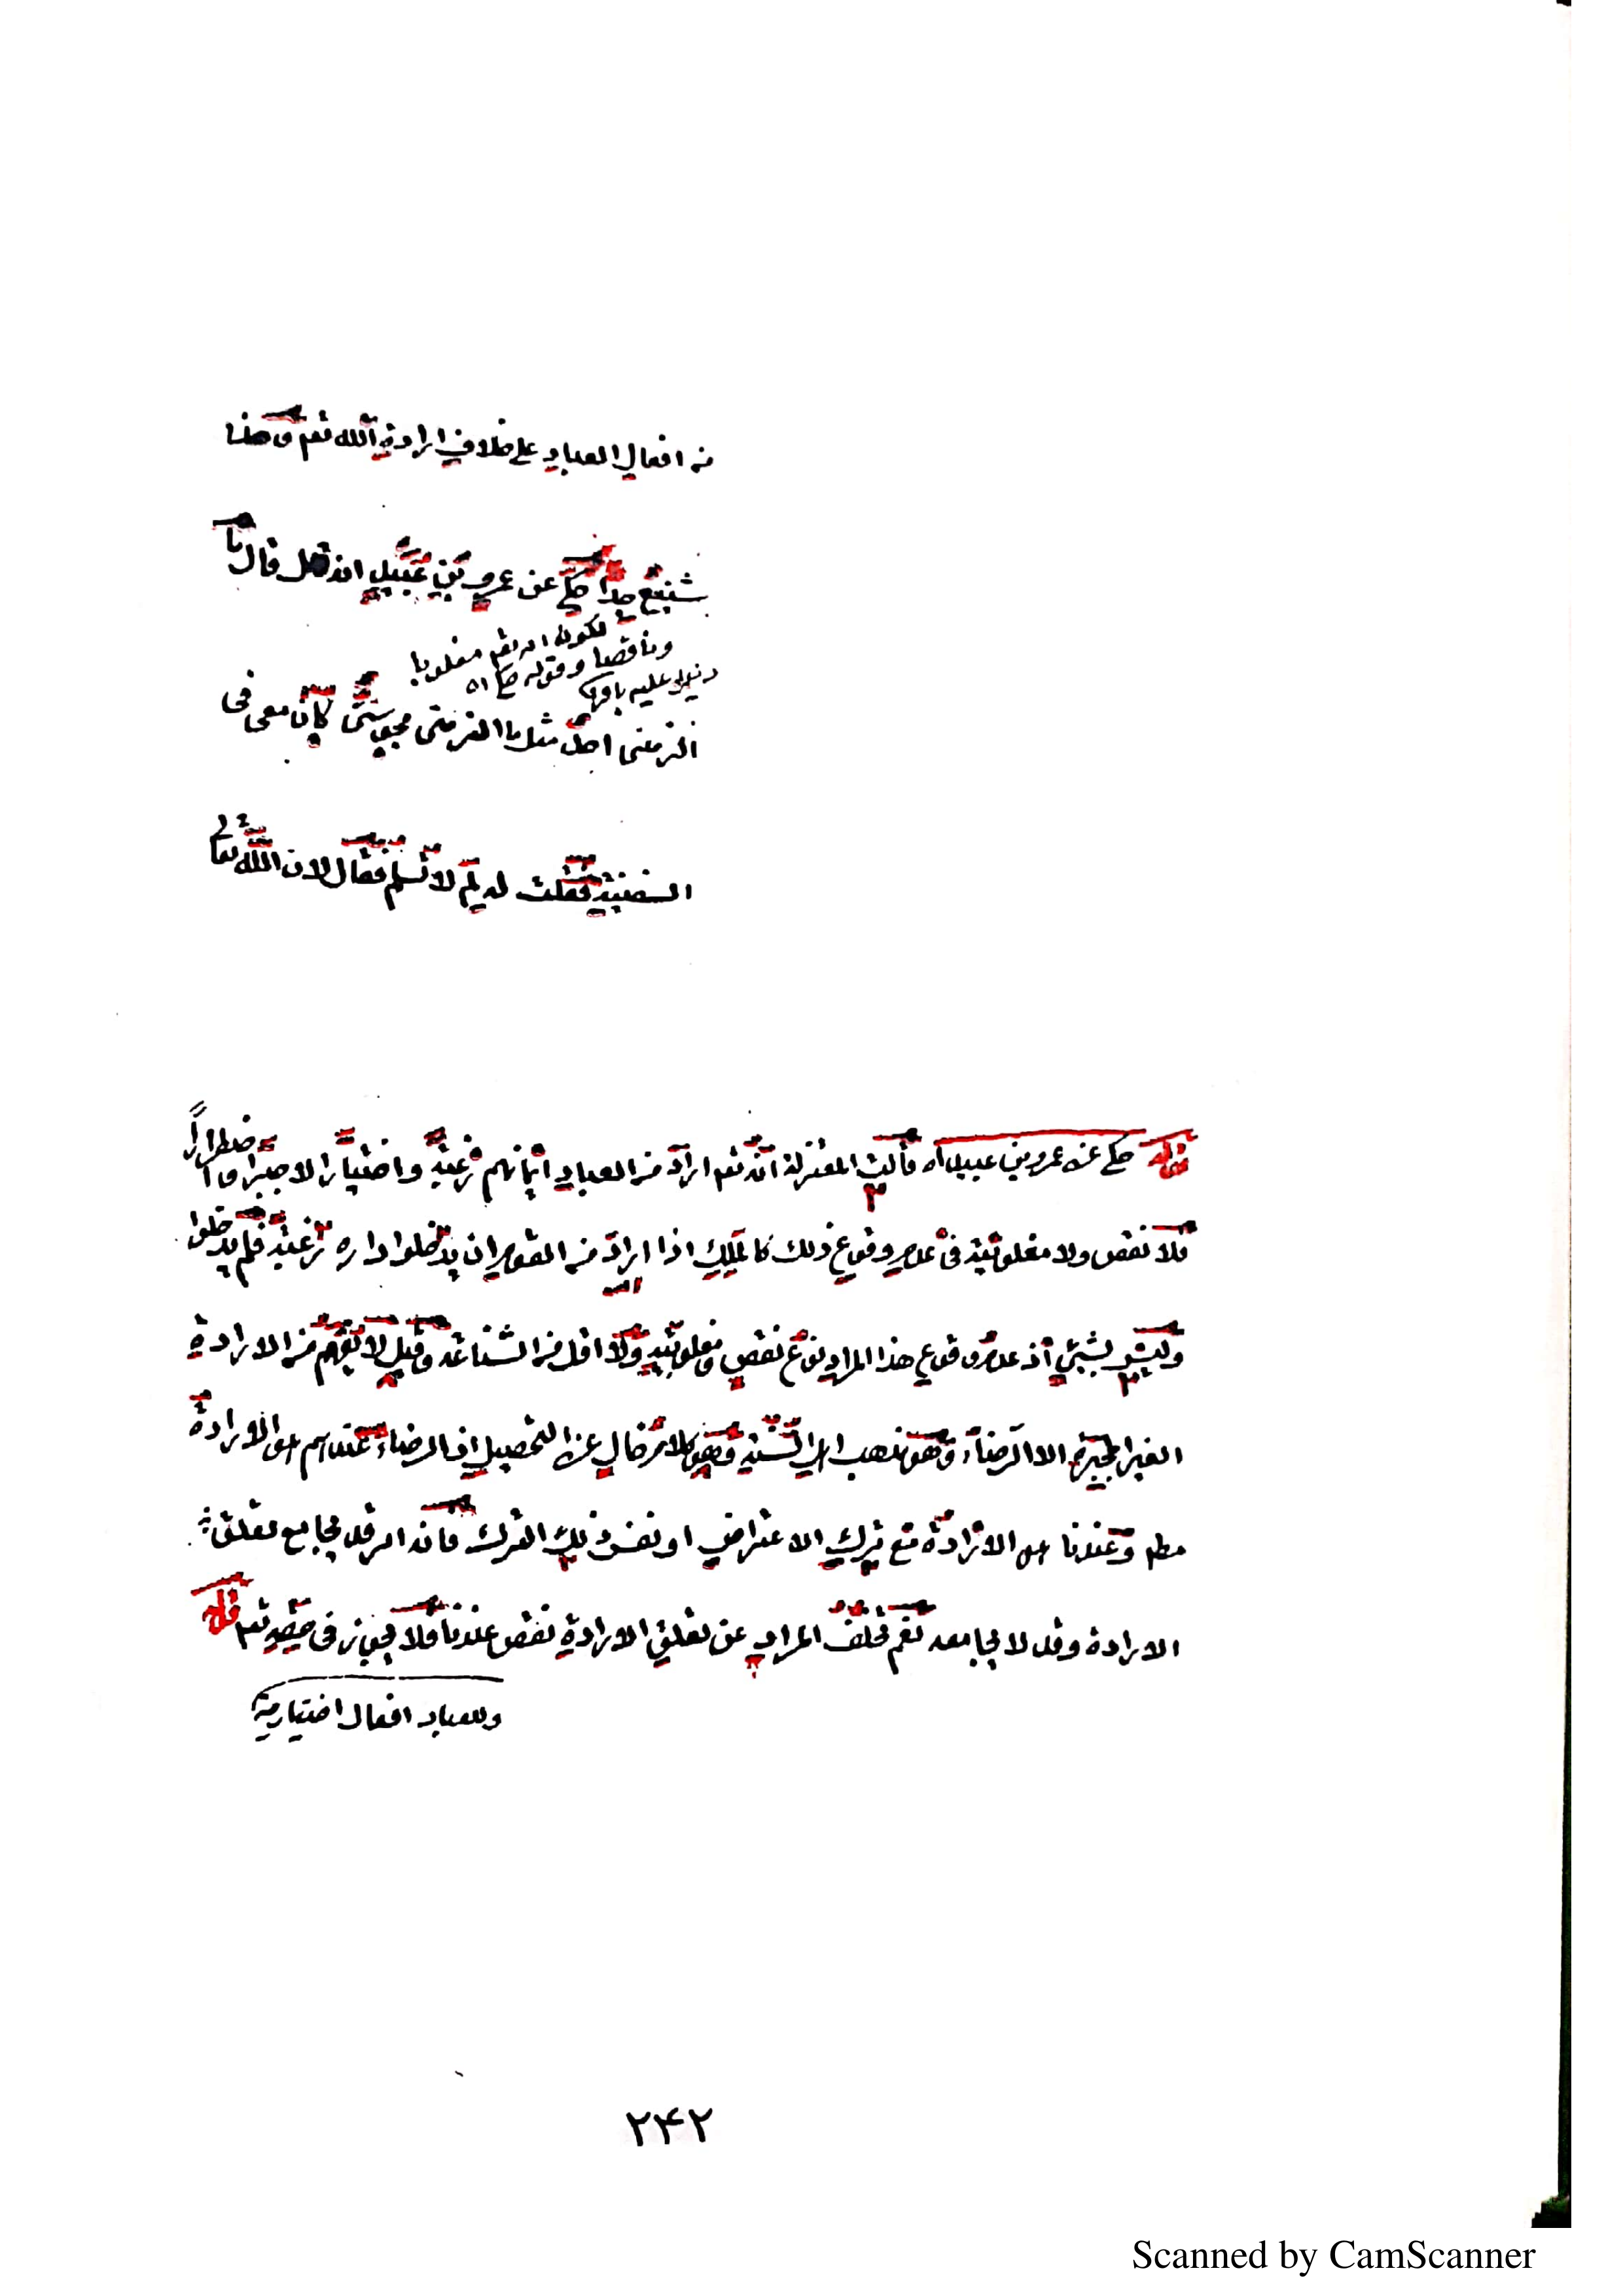 من افعال العباد على خلاف ارادة الله تعم وهذا
شنيع جدا حكي عن عمرو بن عبيد انه قال ما
لكون الله تعم مغلوبا
وناقصا وقوله حكى اه
دليل عليه
الزمني احد مثل ما الزمني مجوسي كان معي في
السفينة فقلت له لم لا تسلم فقال لان الله تعالى
قوله حكي عن عمرو بن عبيد اه قالت المعتزلة انه تعم اراد من العباد ايمانهم رغبة واختيارا لا جبرا واضطرارا
فلا نقص ولا مغلوبية في عدم وقوع ذلك كالملك اذا اراد من القوم ان يدخلوا داره رغبة فلم يدخلوا
وليس بشيئ اذ عدم وقوع هذا المراد نوع نقص ومغلوبية ولا اقل من الشناعة وقيل لا يفهم من الارادة
الغير الجبرية الا الرضاء وهو مذهب اهل السنة وهو كلام خال عن التحصيل اذ الرضاء عندهم هو الارادة
مطم وعندنا هو الارادة مع ترك الاعتراض او نفس ذلك الترك فانه امر قد يجامع تعلق
الارادة وقد لا يجامعه نعم تخلف المراد عن تعلق الارادة نقص عندنا فلا يجوز في حقه تعم قوله
وللعباد افعال اختيارية
۲۴۲
Scanned by CamScanner